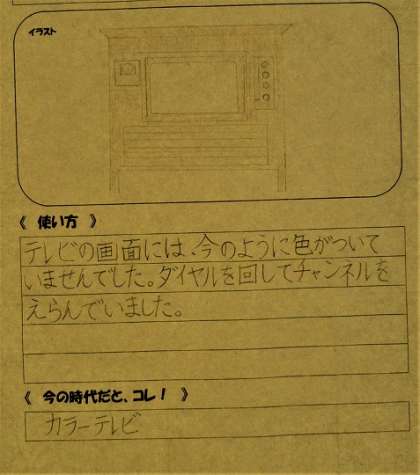 イラスト
《 使い方 》
テレビの画面には、今のように色がついて
いませんでした。ダイヤルを回してチャンネルを
えらんでいました。
《 今の時代だと、コレ！ 》
カラーテレビ